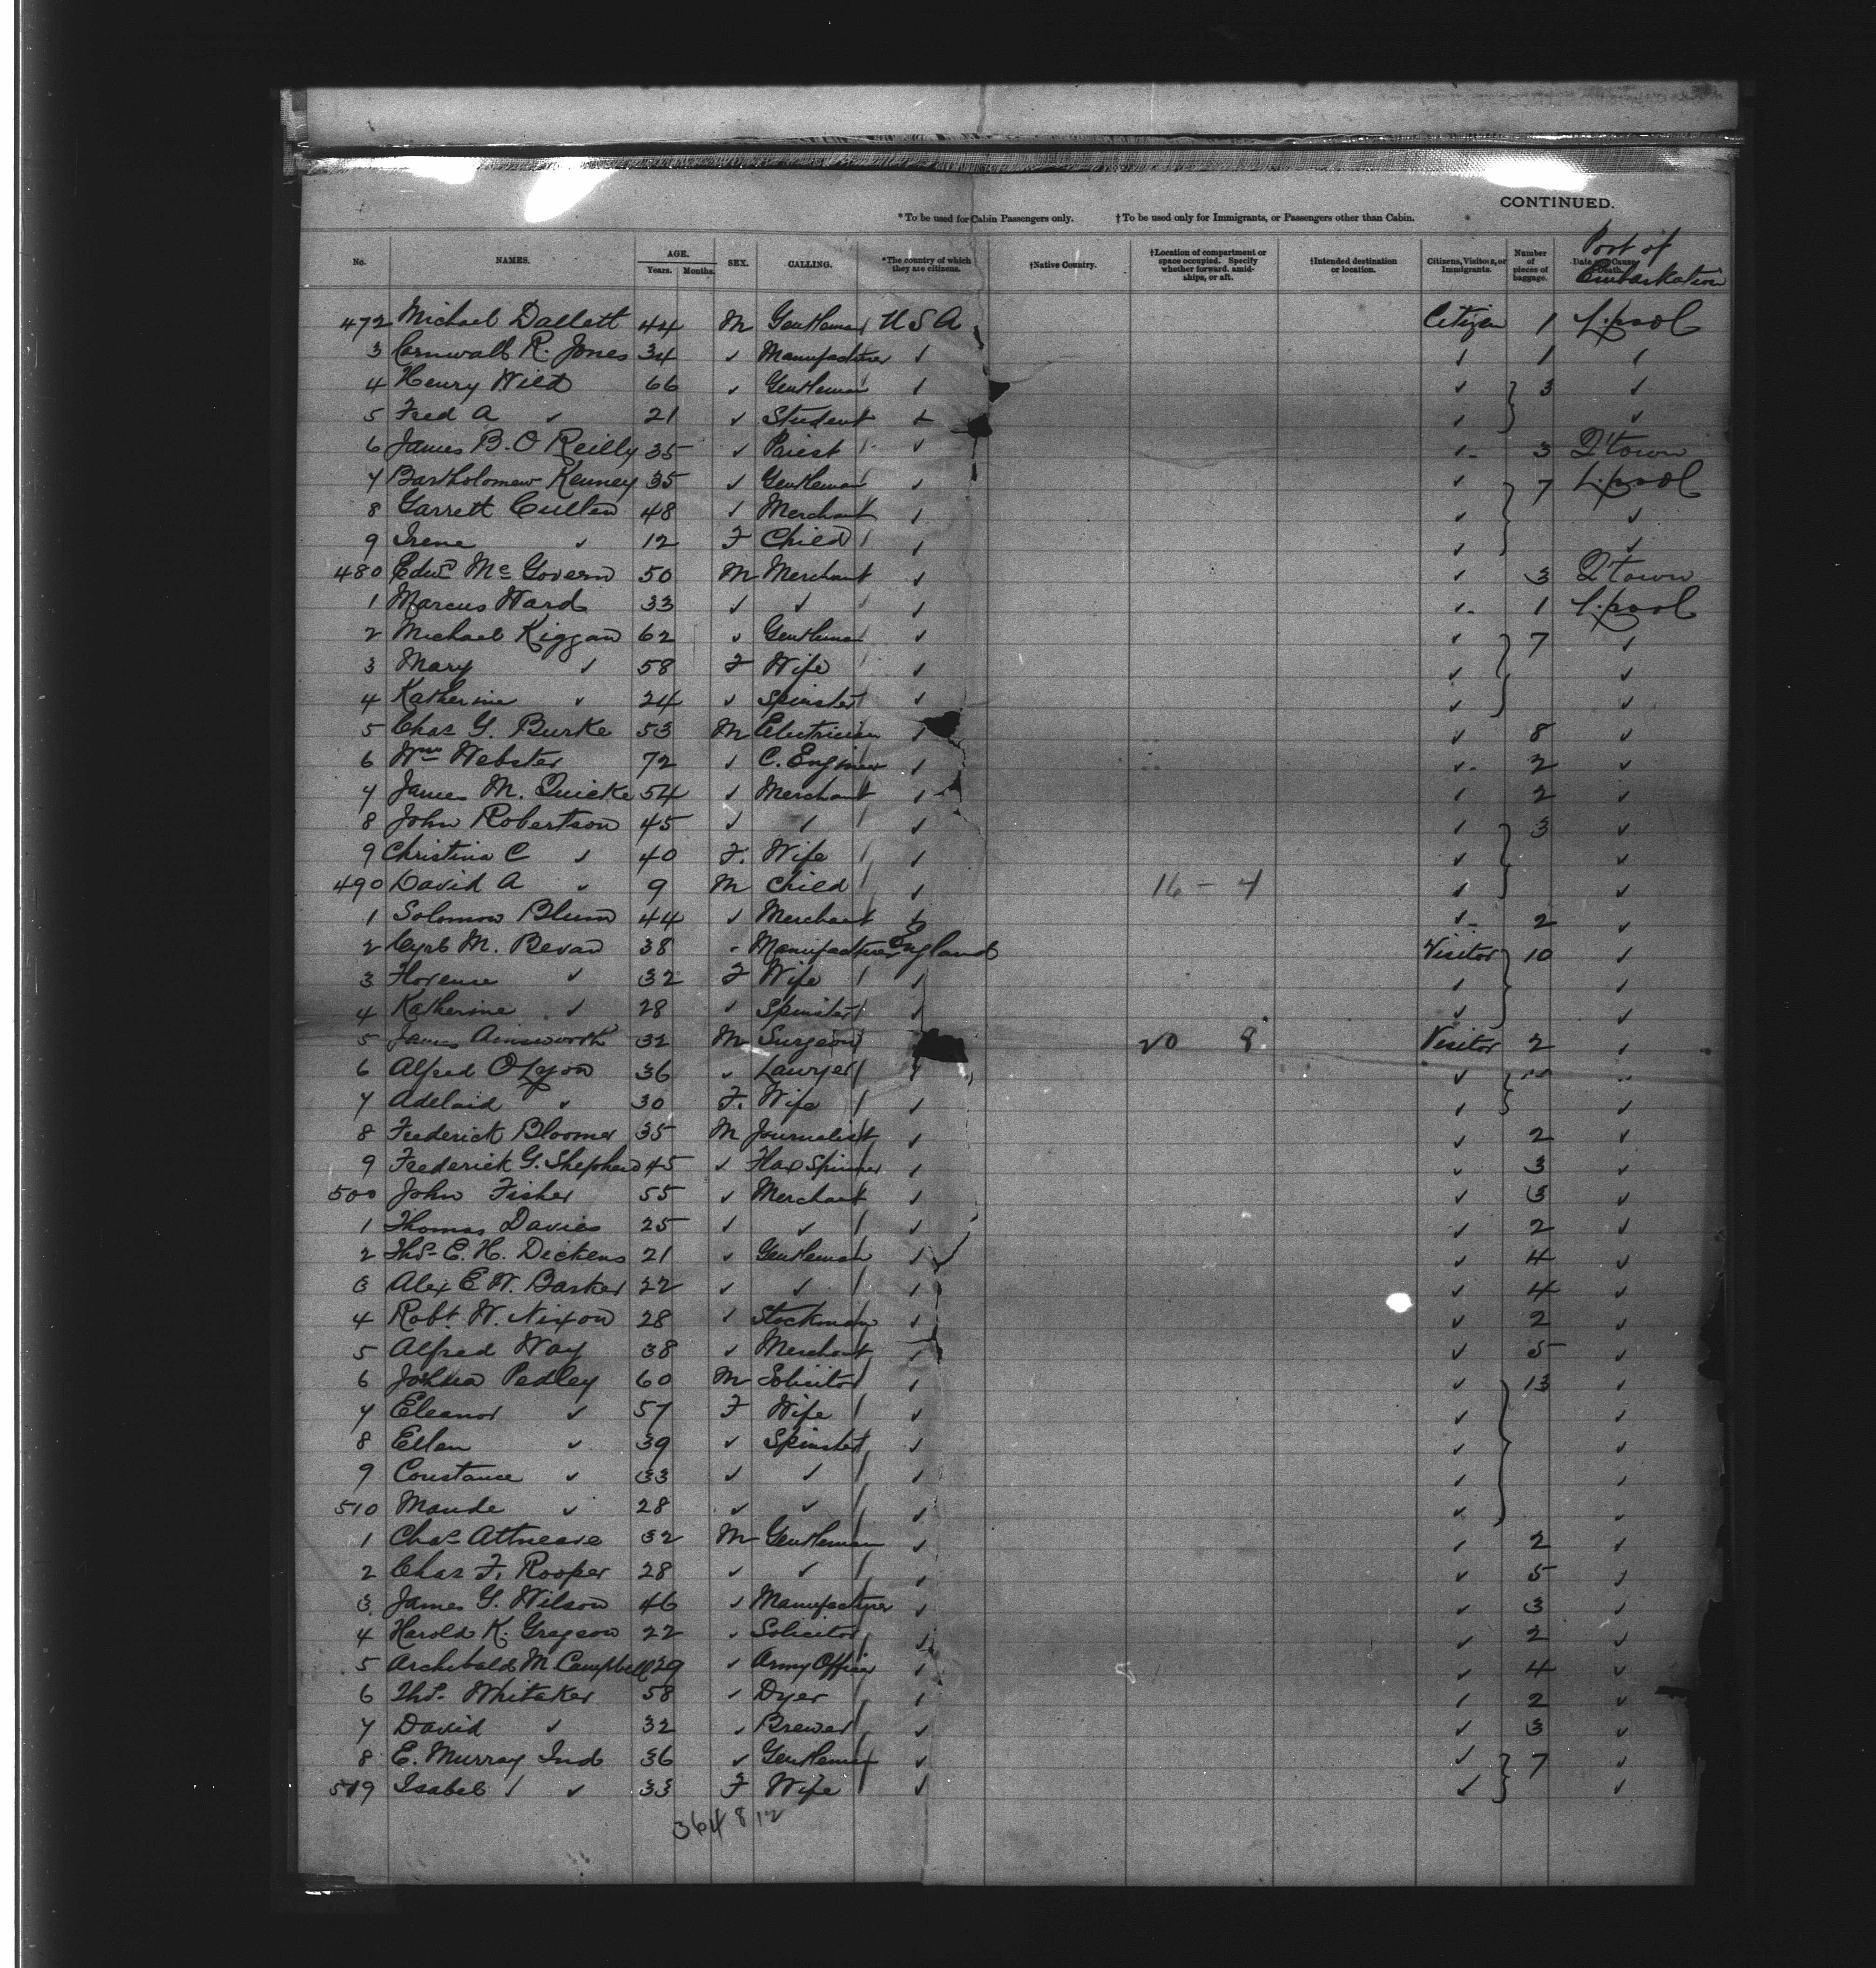 CONTINUED.
*To be used for Cabin Passengers only. †To be used only for Immigrants, or Passengers other than Cabin.
No. NAMES. AGE. Years. Months. SEX. CALLING. *The country of which they are citizens. †Native Country. †Location of compartment or space occupied. Specify whether forward, amidships, or aft. †Intended destination or location. Citizens, Visitors, or Immigrants. Number of pieces of baggage. Port of Embarkation
472 Michael Dallett 44 M Gentleman U S A Citizen 1 L.pool
3 Cornwall R. Jones 34 ✓ Manufacturer ✓ ✓ 1 ✓
4 Henry Wild 66 ✓ Gentleman ✓ ✓ } 3 ✓
5 Fred A ✓ 21 ✓ Student ✓ ✓ ✓
6 James B. O Reilly 35 ✓ Priest ✓ ✓ 3 Q'town
7 Bartholomew Kenney 35 ✓ Gentleman ✓ ✓ } 7 L.pool
8 Garrett Cullen 48 ✓ Merchant ✓ ✓ ✓
9 Irene ✓ 12 F Child ✓ ✓ ✓
480 Edwd Mc Govern 50 M Merchant ✓ ✓ 3 Q'town
1 Marcus Ward 33 ✓ ✓ ✓ ✓ 1 L.pool
2 Michael Kiggan 62 ✓ Gentleman ✓ ✓ } 7 ✓
3 Mary ✓ 58 F Wife ✓ ✓ ✓
4 Katherine ✓ 24 ✓ Spinster ✓ ✓ ✓
5 Chas G. Burke 53 M Electrician ✓ ✓ 8 ✓
6 Wm Webster 72 ✓ C. Engineer ✓ ✓ 2 ✓
7 James M. Quicke 54 ✓ Merchant ✓ ✓ 2 ✓
8 John Robertson 45 ✓ ✓ ✓ ✓ } 3 ✓
9 Christina C ✓ 40 F. Wife ✓ ✓ ✓
490 David A ✓ 9 M Child ✓ 16 - 4 ✓ ✓
1 Solomon Blum 44 ✓ Merchant ✓ ✓ 2 ✓
2 M. Bevan 38 ✓ Manufacturer England Visitor } 10 ✓
3 Florence ✓ 32 F Wife ✓ ✓ ✓
4 Katherine ✓ 28 ✓ Spinster ✓ ✓ ✓
5 James Ainsworth 32 M Surgeon 20 8 Visitor 2 ✓
6 Alfred O Lyon 36 ✓ Lawyer ✓ ✓ } ✓
7 Adelaid ✓ 30 F. Wife ✓ ✓ ✓
8 Frederick Bloomer 35 M Journalist ✓ ✓ 2 ✓
9 Frederick G. Shepherd 45 ✓ Flax Spinner ✓ ✓ 3 ✓
500 John Fisher 55 ✓ Merchant ✓ ✓ 3 ✓
1 Thomas Davies 25 ✓ ✓ ✓ ✓ 2 ✓
2 Thos E. H. Dickens 21 ✓ Gentleman ✓ ✓ 4 ✓
3 Alex E W. Barker 22 ✓ ✓ ✓ ✓ 4 ✓
4 Robt. W. Nixon 28 ✓ Stockman ✓ ✓ 2 ✓
5 Alfred Way 38 ✓ Merchant ✓ ✓ 5 ✓
6 Joshua Pedley 60 M Solicitor ✓ ✓ } 13 ✓
7 Eleanor ✓ 57 F Wife ✓ ✓ ✓
8 Ellen ✓ 39 ✓ Spinster ✓ ✓ ✓
9 Constance ✓ 33 ✓ ✓ ✓ ✓ ✓
510 Maude ✓ 28 ✓ ✓ ✓ ✓ ✓
1 Chas Attneave 32 M Gentleman ✓ ✓ 2 ✓
2 Chas F. Rooper 28 ✓ ✓ ✓ ✓ 5 ✓
3 James G. Wilson 46 ✓ Manufacturer ✓ ✓ 3 ✓
4 Harold K. Grayson 22 ✓ Solicitor ✓ ✓ 2 ✓
5 Archibald M. Campbell 29 ✓ Army Officer ✓ ✓ 4 ✓
6 Thos. Whitaker 58 ✓ Dyer ✓ ✓ 2 ✓
7 David ✓ 32 ✓ Brewer ✓ ✓ 3 ✓
8 E. Murray Ind 36 ✓ Gentleman ✓ ✓ } 7 ✓
519 Isabel ✓ 33 F Wife ✓ ✓ ✓
364 8 12